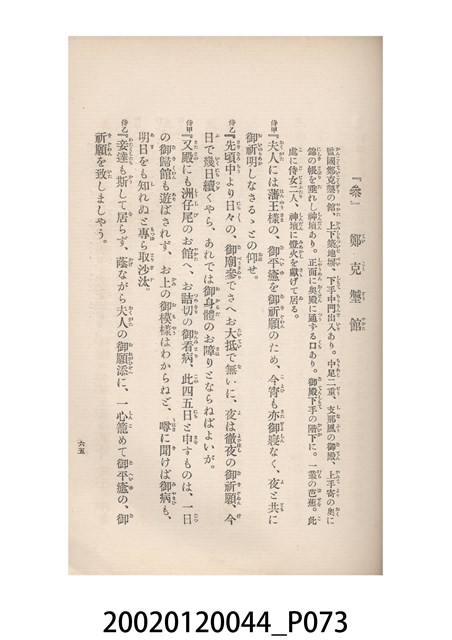 『參』 鄭克𡒉館
監國鄭克𡒉の館、上下築地塀、下手中門出入あり。中足二重、支那風の御殿、上手寄の奥に
錦の帳を垂れし神壇あり。正面に奥殿に通ずる口あり。御殿下手の階下に。一叢の芭蕉。此
處に侍女二人、神壇に燈火を獻げて居る。
侍甲『夫人には藩王樣の、御平癒を御祈願のため、今宵も亦御寢なく、夜と共に
御祈明しなさるゝとの仰せ。
侍乙『先頃中より日々の、御廟參でさへお大抵で無いに、夜は徹夜の御祈願、今
日で幾日續くやら、あれでは御身體のお障りとならねばよいが。
侍甲『又殿にも洲仔尾のお館へ、お詰切の御看病、此四五日と申すものは、一日
の御歸館も遊ばされず、お上の御模樣はわからねど、噂に聞けば御病も、
明日をも知れぬと專ら取沙汰。
侍乙『妾達も斯して居らず、蔭ながら夫人の御願添に、一心籠めて御平癒の、御
祈願を致しましやう。
六五
20020120044_P073